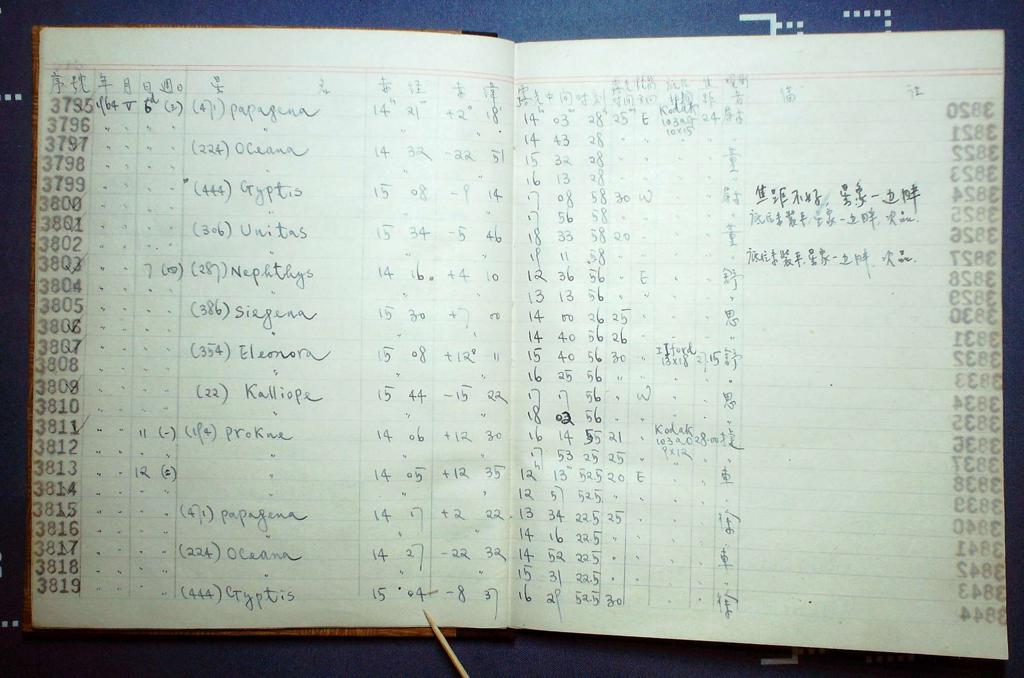 序號 年 月 日 週 星 名 赤 經 赤 緯 露光中间时刻
3795 1964 V 6d (3) (471) papagena 14h 21m +2° 18' 14h 03m 28s 25m E Kodak 103aO 10x15 24 舒
3796 " " " " " 14 43 28 " "
3797 " " " (224) Oceana 14 32 -22 51 15 32 28 " " 董
3798 " " " " " 16 13 28 " "
3799 " " " (444) Gyptis 15 08 -9 14 17 08 58 30 W 舒 焦距不好, 星象一边胖
3800 " " " " " 17 56 58 " " 星象一边胖, 次品.
3801 " " " (306) Unitas 15 34 -5 46 18 33 58 20 董
3802 " " " " " 19 11 58 " 星象一边胖 次品.
3803 " 7 (287) Nephthys 14 16 +4 10 12 36 56 " E 舒
3804 " " " " " 13 13 56 " "
3805 " " " (386) Siegena 15 30 +7 00 14 00 26 25 思
3806 " " " " " 14 40 56 26
3807 " " " (354) Eleonora 15 08 +12° 11 15 40 56 30 Ilford 13x18 27.15 舒
3808 " " " " " 16 25 56 " "
3809 " " " (22) Kalliope 15 44 -15 22 17 7 56 " W 思
3810 " " " " " 18 02 56 " "
3811 " 11 (-) (194) Prokne 14 06 +12 30 16 14 55 21 Kodak 103aO 9x12 28.00
3812 " " " " " 17 53 25 25
3813 " 12 (=) " 14 05 +12 35 12h 13m 52.5 20 E 車
3814 " " " " " 12 57 52.5 " "
3815 " " " (471) papagena 14 17 +2 22 13 34 22.5 25 徐
3816 " " " " " 14 16 22.5 " "
3817 " " " (224) Oceana 14 27 -22 32 14 52 22.5 " " 車
3818 " " " " " 15 31 22.5 " "
3819 " " " (444) Gyptis 15 04 -8 37 16 29 52.5 30 徐
3820
3821
3822
3823
3824
3825
3826
3827
3828
3829
3830
3831
3832
3833
3834
3835
3836
3837
3838
3839
3840
3841
3842
3843
3844